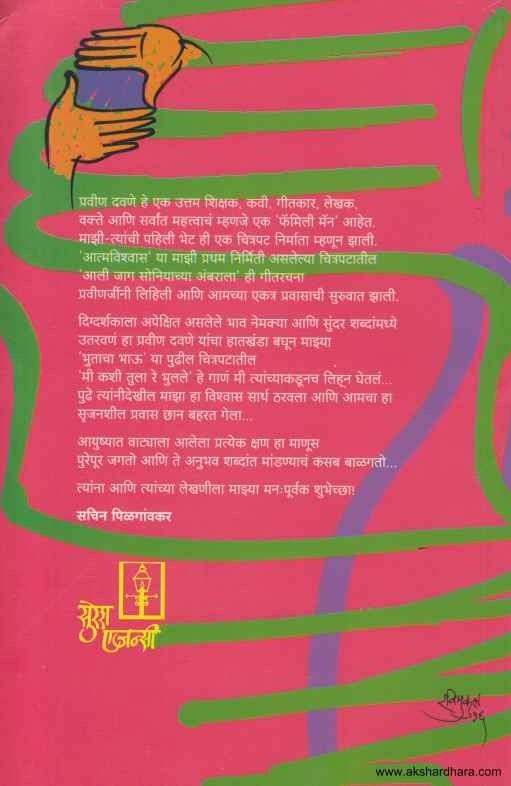 प्रवीण दवणे हे एक उत्तम शिक्षक, कवी, गीतकार, लेखक,
वक्ते आणि सर्वांत महत्त्वाचं म्हणजे एक 'फॅमिली मॅन' आहेत.
माझी-त्यांची पहिली भेट ही एक चित्रपट निर्माता म्हणून झाली.
'आत्मविश्वास' या माझी प्रथम निर्मिती असलेल्या चित्रपटातील
'आली जाग सोनियाच्या अंबराला' ही गीतरचना
प्रवीणजींनी लिहिली आणि आमच्या एकत्र प्रवासाची सुरुवात झाली.
दिग्दर्शकाला अपेक्षित असलेले भाव नेमक्या आणि सुंदर शब्दांमध्ये
उतरवणं हा प्रवीण दवणे यांचा हातखंडा बघून माझ्या
'भुताचा भाऊ' या पुढील चित्रपटातील
'मी कशी तुला रे भुलले' हे गाणं मी त्यांच्याकडूनच लिहून घेतलं...
पुढे त्यांनीदेखील माझा हा विश्वास सार्थ ठरवला आणि आमचा हा
सृजनशील प्रवास छान बहरत गेला...
आयुष्यात वाट्याला आलेला प्रत्येक क्षण हा माणूस
पुरेपूर जगतो आणि ते अनुभव शब्दांत मांडण्याचं कसब बाळगतो...
त्यांना आणि त्यांच्या लेखणीला माझ्या मनःपूर्वक शुभेच्छा!
सचिन पिळगांवकर
सुरेश
एजन्सी
www.akshardhara.com